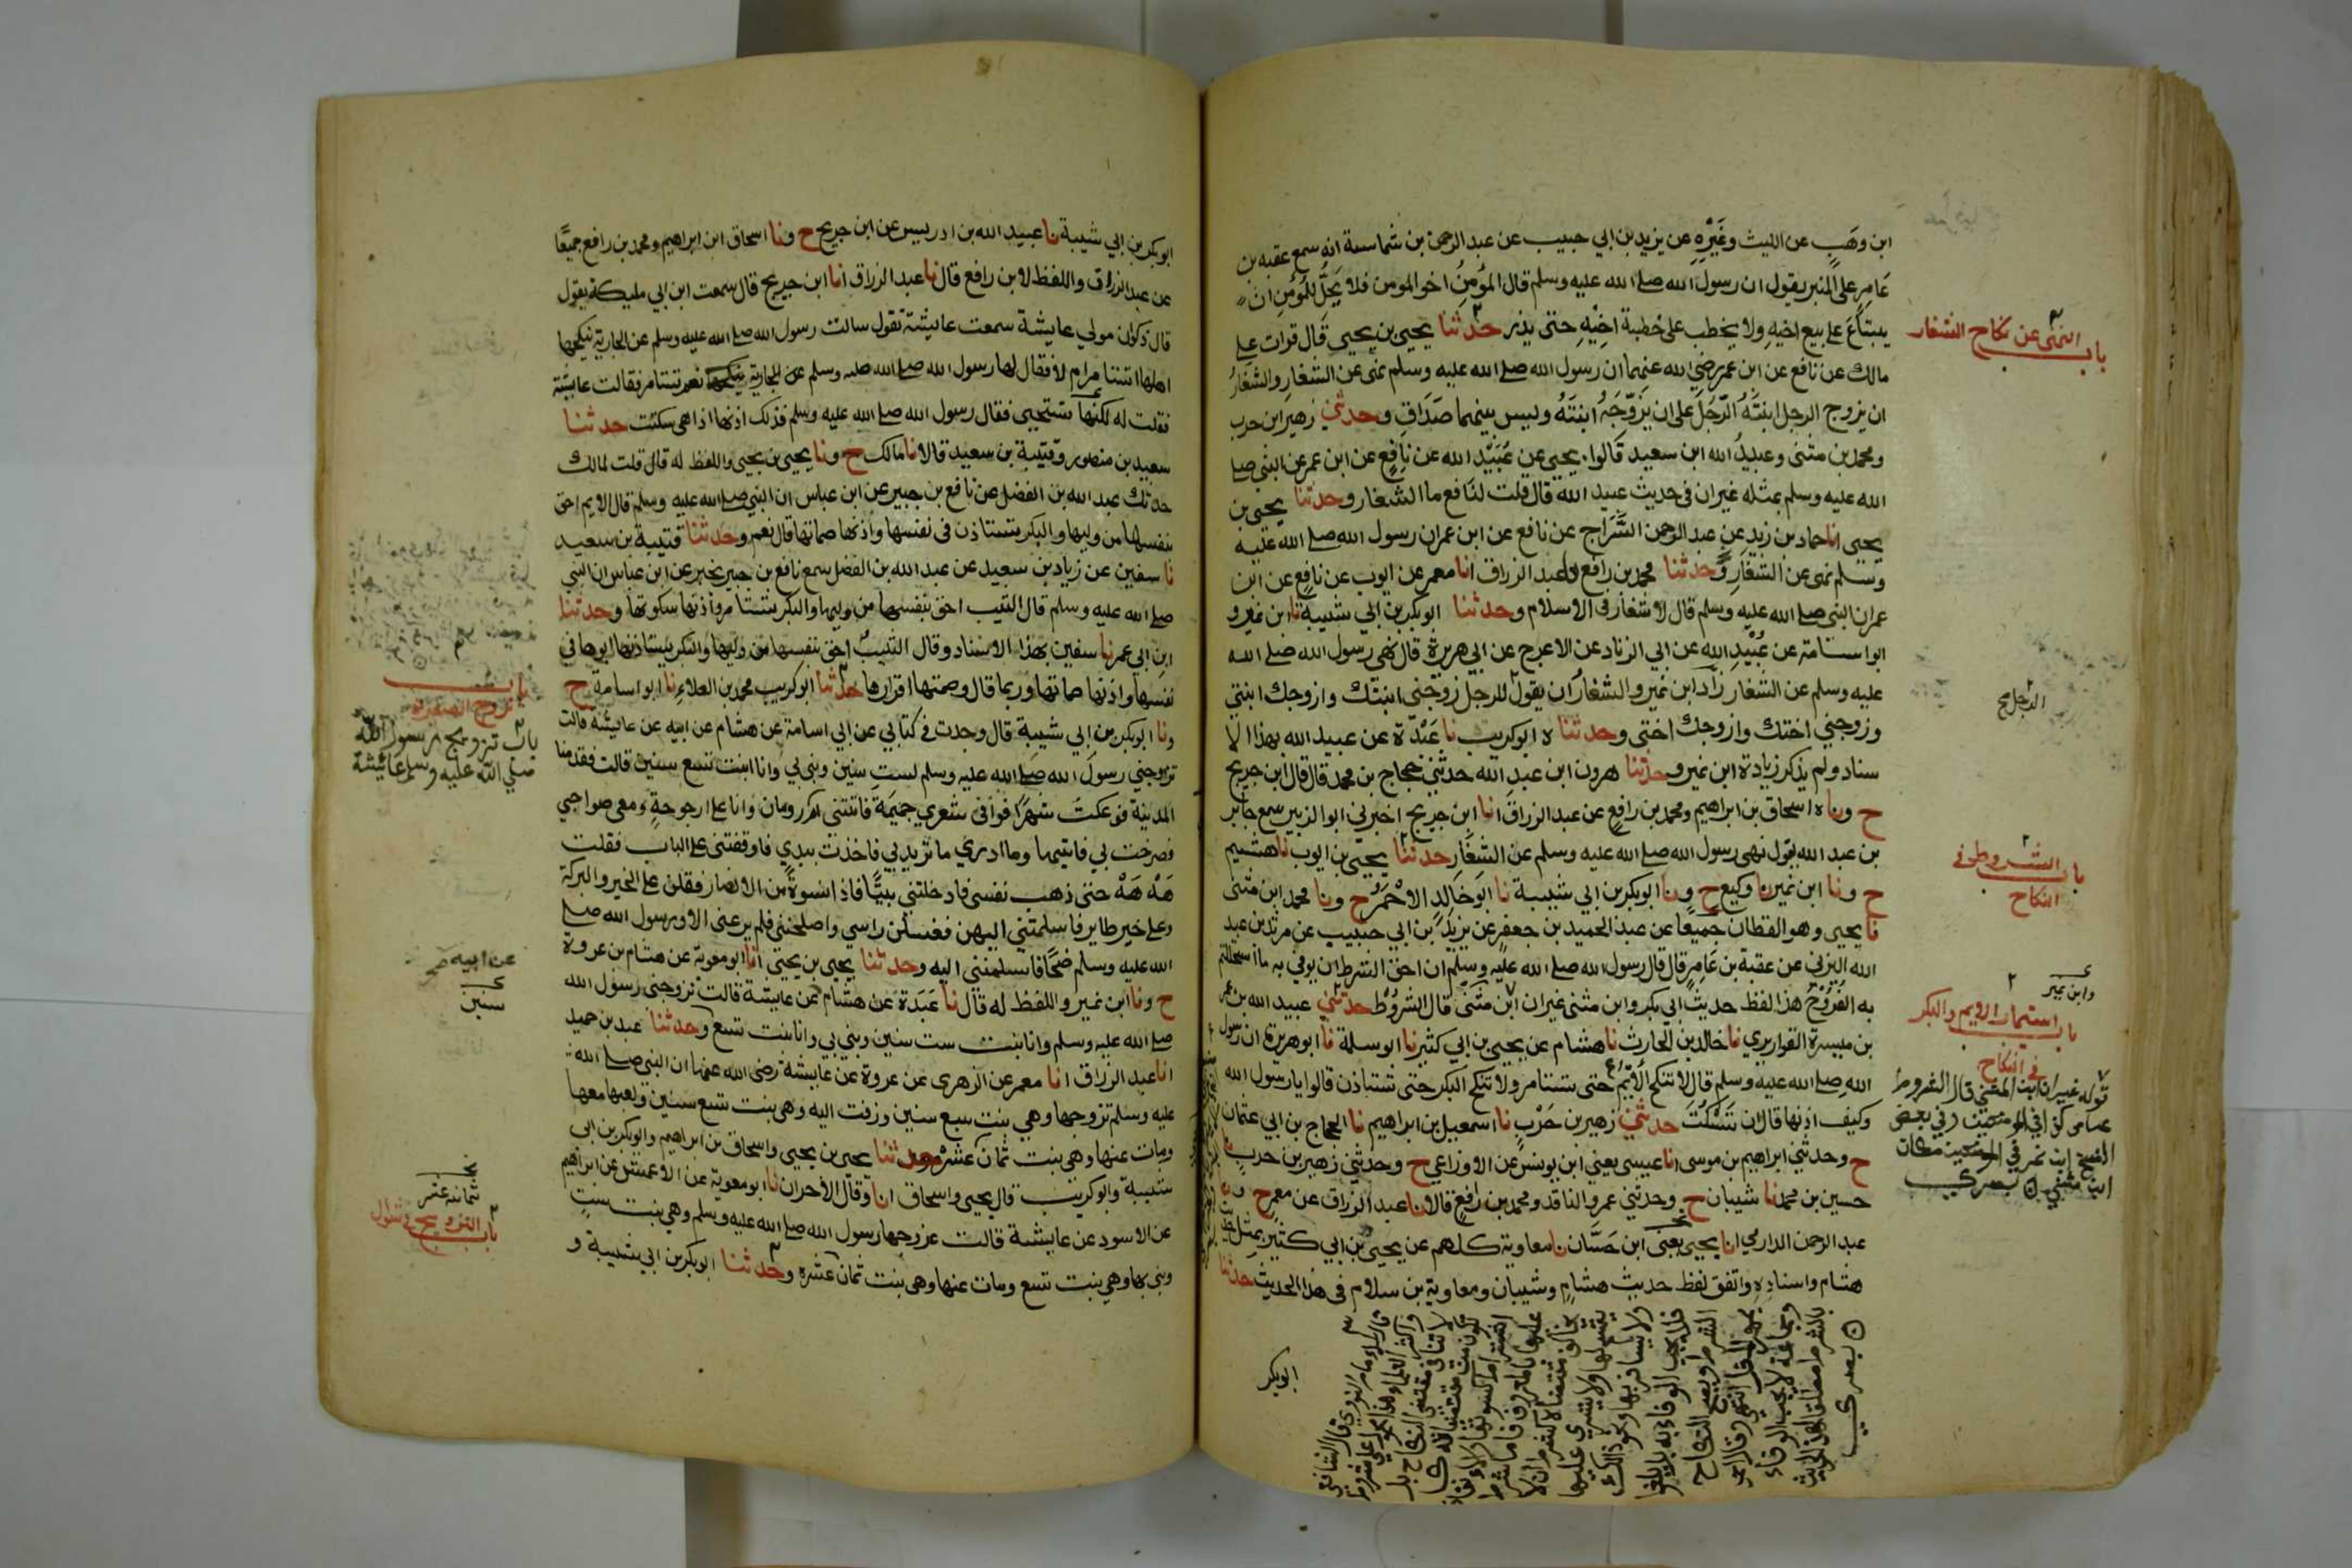 ابن وهب عن الليث وغيره عن يزيد بن ابي حبيب عن عبد الرحمن بن شماسة انه سمع عقبة بن
عامر على المنبر يقول ان رسول الله صلى الله عليه وسلم قال المؤمن اخو المومن فلا يحل للمؤمن ان
يبتاع على بيع اخيه ولا يخطب على خطبة اخيه حتى يذر حدثنا يحيى بن يحيى قال قرات على
باب النهي عن نكاح الشغار
مالك عن نافع عن ابن عمر رضي الله عنهما ان رسول الله صلى الله عليه وسلم نهى عن الشغار والشغار
ان يزوج الرجل ابنته الرجل على ان يزوجه ابنته وليس بينهما صداق وحدثني زهير ابن حرب
ومحمد بن مثنى وعبيد الله ابن سعيد قالوا يحيى عن عبيد الله عن نافع عن ابن عمر عن النبي صلى
الله عليه وسلم بمثله غير ان في حديث عبيد الله قال قلت لنافع ما الشغار وحدثنا يحيى بن
يحيى انا حماد بن زيد عن عبد الرحمن السراج عن نافع عن ابن عمر ان رسول الله صلى الله عليه
وسلم نهى عن الشغار وحدثنا محمد بن رافع نا عبد الرزاق انا معمر عن ايوب عن نافع عن ابن
عمر ان النبي صلى الله عليه وسلم قال لا شغار في الاسلام وحدثنا ابو بكر بن ابي شيبة نا ابن نمير و
ابو اسامة عن عبيد الله عن ابي الزناد عن الاعرج عن ابي هريرة قال نهى رسول الله صلى الله
عليه وسلم عن الشغار زاد ابن نمير والشغار ان يقول الرجل للرجل زوجني ابنتك وازوجك ابنتي
وزوجني اختك وازوجك اختي وحدثناه ابو كريب نا عبدة عن عبيد الله بهذا الا
سناد ولم يذكر زيادة ابن نمير وحدثنا هرون ابن عبد الله حدثني حجاج بن محمد قال قال ابن جريج
ح وناه اسحاق بن ابراهيم ومحمد بن رافع عن عبد الرزاق انا ابن جريج اخبرني ابو الزبير سمع جابر
بن عبد الله يقول نهى رسول الله صلى الله عليه وسلم عن الشغار حدثنا يحيى بن ايوب نا هشيم
باب الشروط في
النكاح
ح ونا ابن نمير نا وكيع ح ونا ابو بكر بن ابي شيبة نا ابو خالد الاحمر ح ونا محمد ابن مثنى
نا يحيى وهو القطان جميعا عن عبد الحميد بن جعفر عن يزيد بن ابي حبيب عن مرثد بن عبد
الله اليزني عن عقبة بن عامر قال قال رسول الله صلى الله عليه وسلم ان احق الشرط ان يوفي به ما استحللتم
به الفروج هذا لفظ حديث ابي بكر وابن مثنى غير ان ابن مثنى قال الشروط حدثني عبيد الله بن عمر
وابن نمير
باب استيمار الايم والبكر
في النكاح
بن ميسرة القواريري نا خالد بن الحارث نا هشام عن يحيى بن ابي كثير نا ابو سلمة نا ابو هريرة ان رسول
الله صلى الله عليه وسلم قال لا تنكح الايم حتى تستامر ولا تنكح البكر حتى تستاذن قالوا يا رسول الله
وكيف اذنها قال ان تسكت حدثني زهير بن حرب نا اسمعيل بن ابراهيم نا الحجاج بن ابي عثمان
ح وحدثني ابراهيم بن موسى انا عيسى يعني ابن يونس عن الاوزاعي ح وحدثني زهير بن حرب نا
حسين بن محمد نا شيبان ح وحدثني عمرو الناقد ومحمد بن رافع قالا نا عبد الرزاق عن معمر ح ونا
عبد الرحمن الدارمي انا يحيى يعني ابن حسان نا معاوية كلهم عن يحيى بن ابي كثير بمثل
هشام واسناده واتفق لفظ حديث هشام وشيبان ومعاوية بن سلام في هذا الحديث حدثنا
قوله غير ان ابن المثنى قال الشروط
ابو بكر
ابو بكر بن ابي شيبة نا عبيد الله بن ادريس عن ابن جريج ح ونا اسحاق ابن ابراهيم ومحمد بن رافع جميعا
عن عبد الرزاق واللفظ لابن رافع قال نا عبد الرزاق انا ابن جريج قال سمعت ابن ابي مليكة يقول
قال ذكوان مولي عايشة سمعت عايشة تقول سالت رسول الله صلى الله عليه وسلم عن الجارية ينكحها
اهلها اتستامر ام لا فقال لها رسول الله صلى الله عليه وسلم نعم تستامر فقالت عايشة
فقلت له لكنها تستحيي فقال رسول الله صلى الله عليه وسلم فذلك اذنها اذا هي سكتت حدثنا
سعيد بن منصور وقتيبة بن سعيد قالا نا مالك ح ونا يحيى بن يحيى واللفظ له قال قلت لمالك
حدثك عبد الله بن الفضل عن نافع بن جبير عن ابن عباس ان النبي صلى الله عليه وسلم قال الايم احق
بنفسها من وليها والبكر تستاذن في نفسها واذنها صماتها قال نعم وحدثنا قتيبة بن سعيد
نا سفين عن زياد بن سعيد عن عبد الله بن الفضل سمع نافع بن جبير يخبر عن ابن عباس ان النبي
صلى الله عليه وسلم قال الثيب احق بنفسها من وليها والبكر تستامر واذنها سكوتها وحدثنا
ابن ابي عمر نا سفين بهذا الاسناد وقال الثيب احق بنفسها من وليها والبكر يستاذنها ابوها في
نفسها واذنها صماتها وربما قال وصمتها اقرارها حدثنا ابو كريب محمد بن العلاء نا ابو اسامة ح
باب
تزويج الصغيرة
باب تزويج رسول الله
صلي الله عليه وسلم عائشة
ونا ابو بكر بن ابي شيبة قال وجدت في كتابي عن ابي اسامة عن هشام عن ابيه عن عايشة قالت
تزوجني رسول الله صلى الله عليه وسلم لست سنين وبنى بي وانا ابنت تسع سنين قالت فقدمنا
المدينة فوعكت شهرا فوافى شعري جميمة فاتتني ام رومان وانا على ارجوحة ومعي صواحبي
فصرخت بي فاتيتها وما ادري ما تريد بي فاخذت بيدي فاوقفتني على الباب فقلت
هه هه حتى ذهب نفسي فادخلتني بيتا فاذا نسوة من الانصار فقلن على الخير والبركة
وعلى خير طاير فاسلمتني اليهن فغسلن راسي واصلحنني فلم يرعني الا ورسول الله صلى
الله عليه وسلم ضحا فاسلمنني اليه وحدثنا يحيى بن يحيى انا ابو معوية عن هشام بن عروة
ح ونا ابن نمير واللفظ له قال نا عبدة عن هشام عن عايشة قالت تزوجني رسول الله
عن ابيه صح
سنين
صلى الله عليه وسلم وانا بنت ست سنين وبني بي وانا بنت تسع وحدثنا عبد بن حميد
انا عبد الرزاق انا معمر عن الزهري عن عروة عن عايشة رضي الله عنها ان النبي صلى الله
عليه وسلم تزوجها وهي بنت سبع سنين وزفت اليه وهي بنت تسع سنين ولعبها معها
ومات عنها وهي بنت ثمان عشرة وحدثنا يحيى بن يحيى واسحاق بن ابراهيم وابو بكر بن ابي
شيبة وابو كريب قال يحيى واسحاق انا وقال الاخران نا ابو معوية عن الاعمش عن ابراهيم
ثمانية عشر
باب التزويج في شوال
عن الاسود عن عايشة قالت تزوجها رسول الله صلى الله عليه وسلم وهي بنت ست
وبنى بها وهي بنت تسع ومات عنها وهي بنت ثمان عشره وحدثنا ابو بكر بن ابي شيبة و